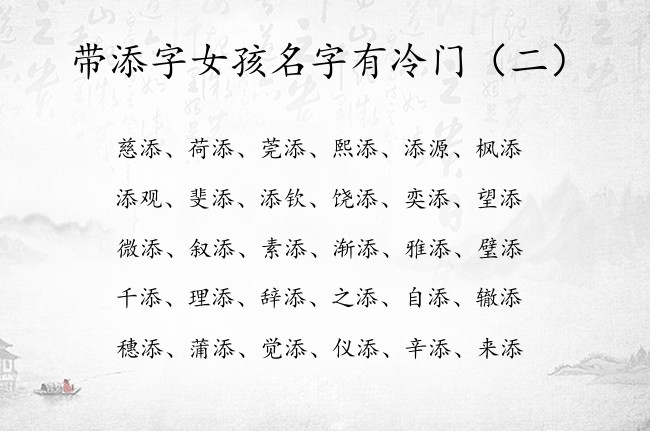 带添字女孩名字有冷门（二）
慈添、荷添、莞添、熙添、添源、枫添
添观、斐添、添钦、饶添、奕添、望添
微添、叙添、素添、渐添、雅添、璧添
千添、理添、辞添、之添、自添、辙添
穗添、蒲添、觉添、仪添、辛添、来添